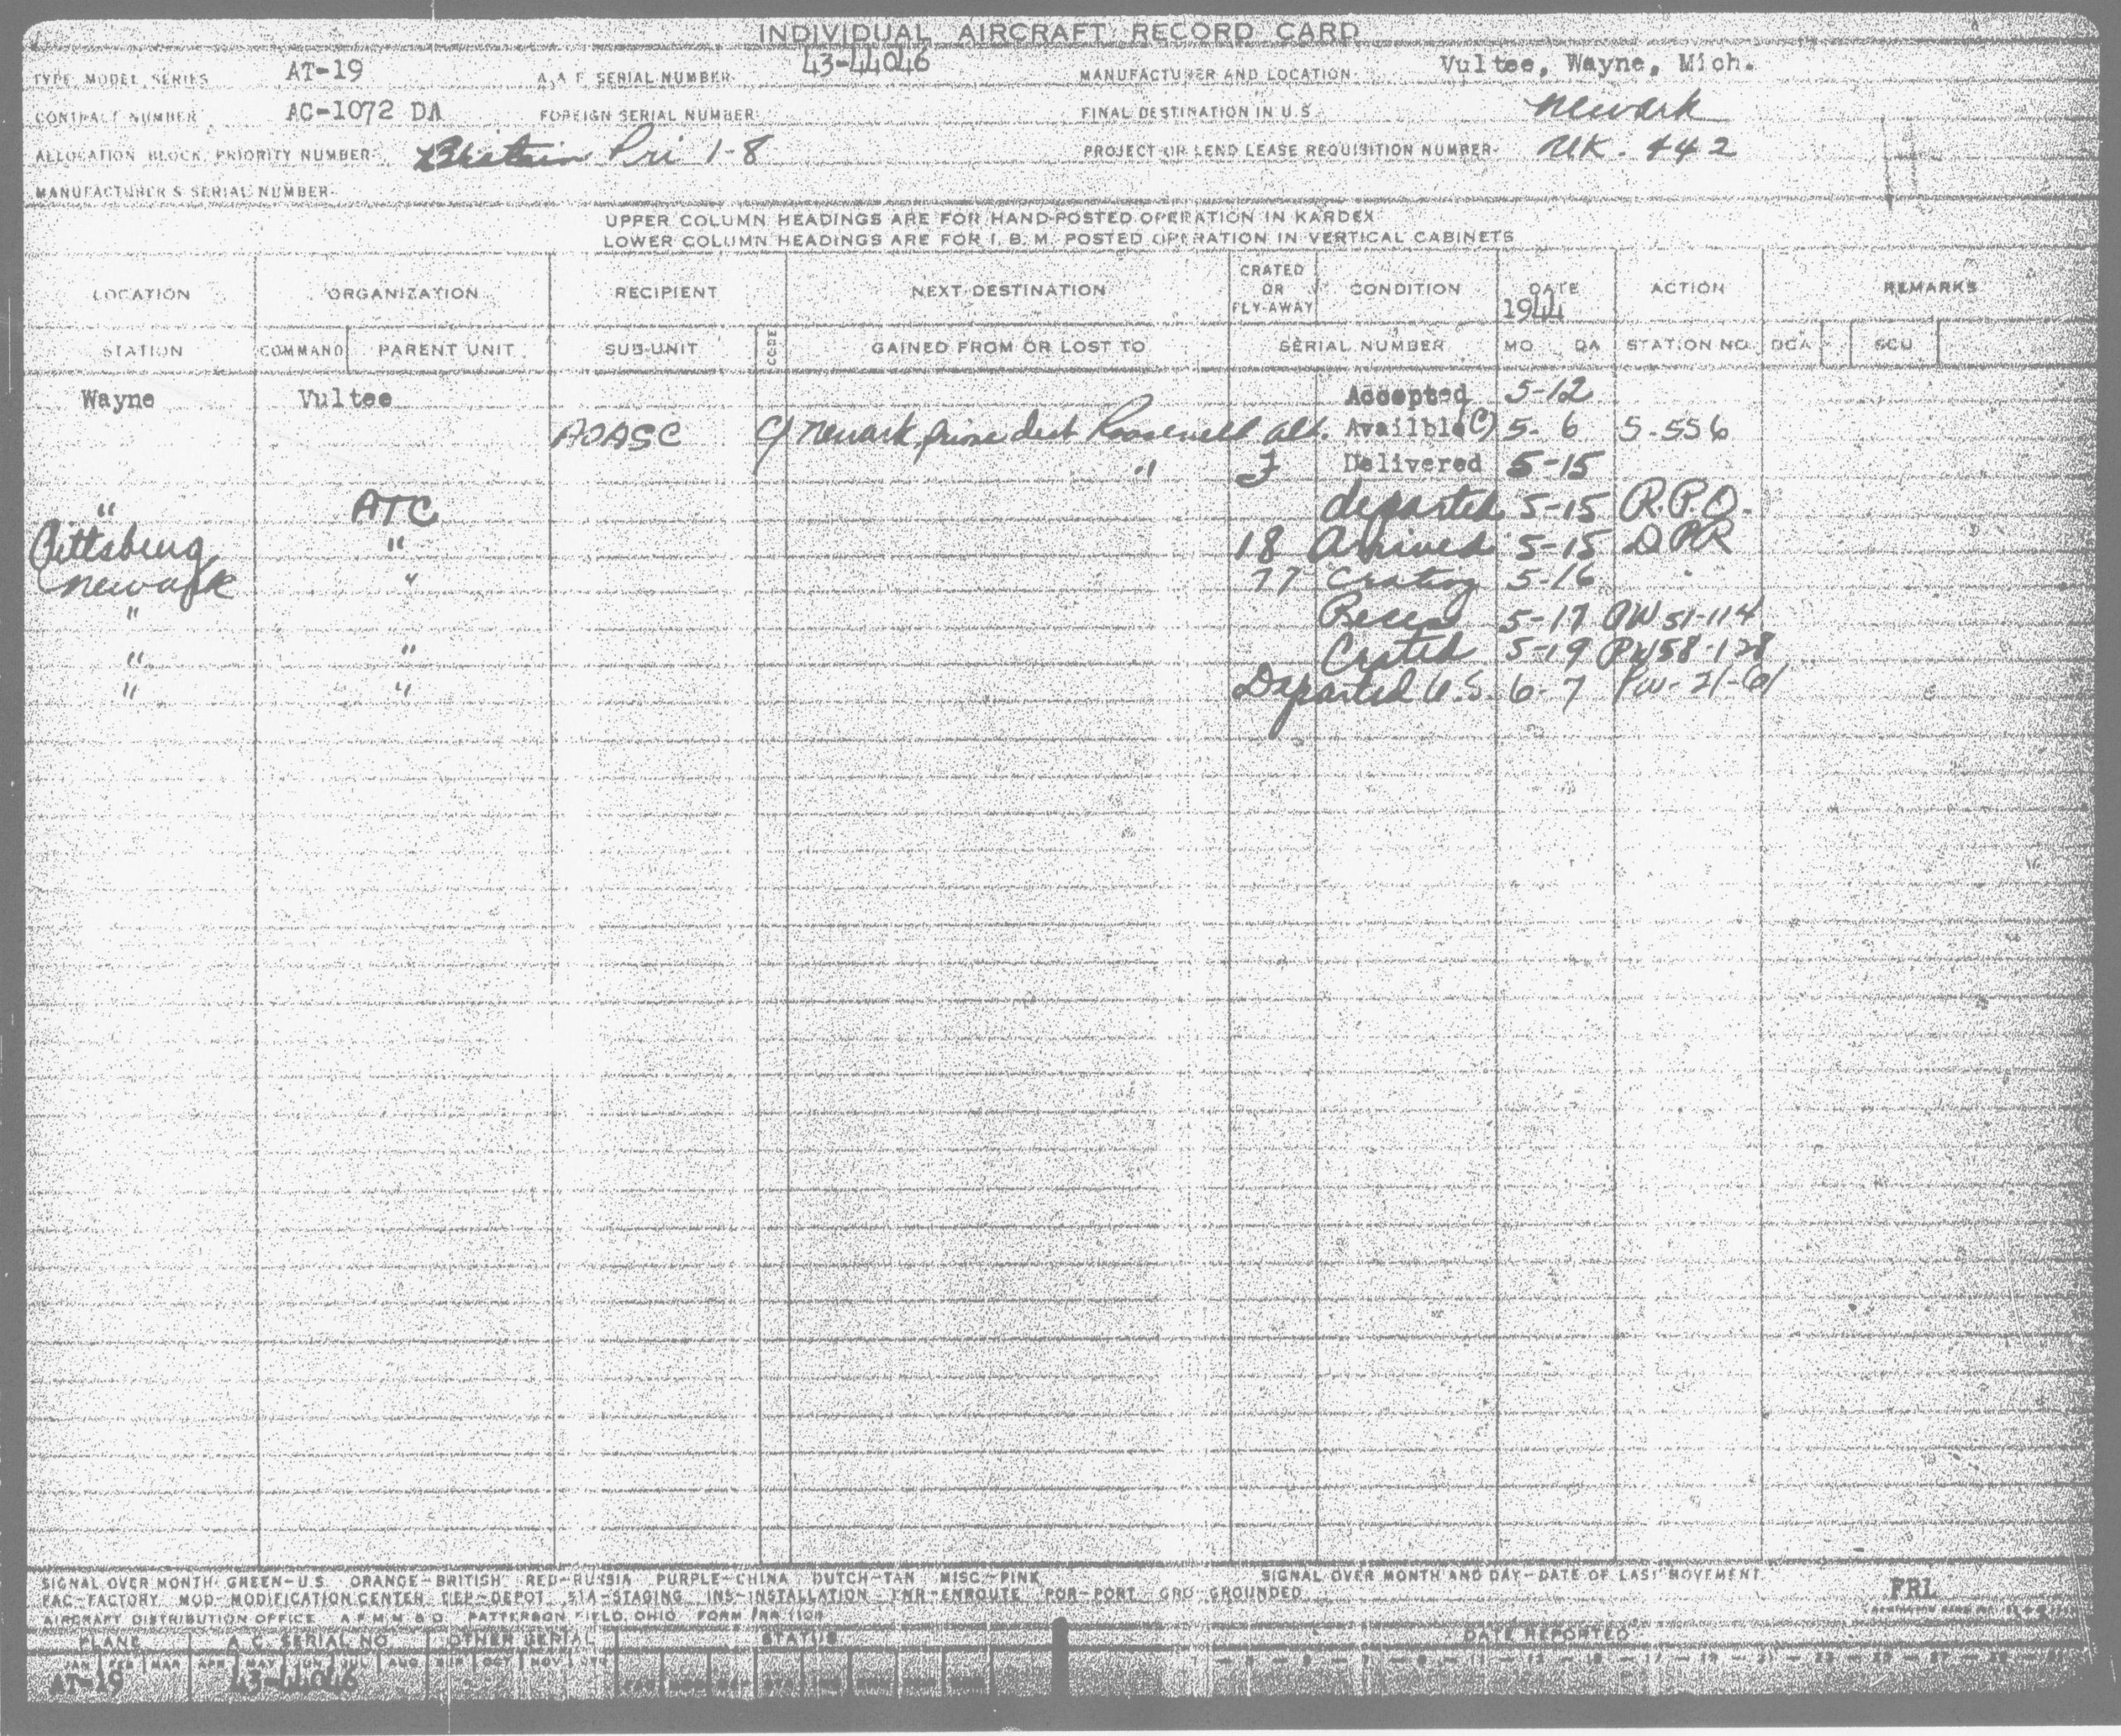 INDIVIDUAL AIRCRAFT RECORD CARD
TYPE, MODEL, SERIES AT-19 A.A.F. SERIAL NUMBER 43-44046 MANUFACTURER AND LOCATION Vultee, Wayne, Mich.
CONTRACT NUMBER AC-1072 DA FOREIGN SERIAL NUMBER FINAL DESTINATION IN U.S. Newark
ALLOCATION BLOCK, PRIORITY NUMBER Britain Pri 1-8 PROJECT OR LEND LEASE REQUISITION NUMBER UK-442
MANUFACTURER'S SERIAL NUMBER
UPPER COLUMN HEADINGS ARE FOR HAND-POSTED OPERATION IN KARDEX
LOWER COLUMN HEADINGS ARE FOR I. B. M. POSTED OPERATION IN VERTICAL CABINETS
LOCATION ORGANIZATION RECIPIENT NEXT DESTINATION CRATED OR FLY-AWAY CONDITION DATE 1944 ACTION REMARKS
STATION COMMAND PARENT UNIT SUB-UNIT CODE GAINED FROM OR LOST TO SERIAL NUMBER MO DA STATION NO. DCA SCU
Wayne Vultee Accepted 5-12
AOASC Newark prime dest Roosevelt alt. Availble (C) 5-6 S-556
" F Delivered 5-15
" ATC departed 5-15 R.P.O.
Pittsburg " 18 Arrived 5-15 DPR
Newark " 77 Crating 5-16
" Recd 5-17 PW 51-114
" " Crated 5-19 PW58-128
" " Departed U.S. 6-7 PW-21-61
SIGNAL OVER MONTH: GREEN-U.S. ORANGE-BRITISH RED-RUSSIA PURPLE-CHINA DUTCH-TAN MISC.-PINK SIGNAL OVER MONTH AND DAY-DATE OF LAST MOVEMENT
FAC-FACTORY MOD-MODIFICATION CENTER DEP-DEPOT STA-STAGING INS-INSTALLATION ENR-ENROUTE POR-PORT GRO-GROUNDED FRL
AIRCRAFT DISTRIBUTION OFFICE PATTERSON FIELD, OHIO FORM
PLANE A.C. SERIAL NO. OTHER SERIAL STATUS DATE REPORTED
JAN FEB MAR APR MAY JUN JUL AUG OCT NOV
AT-19 43-44046